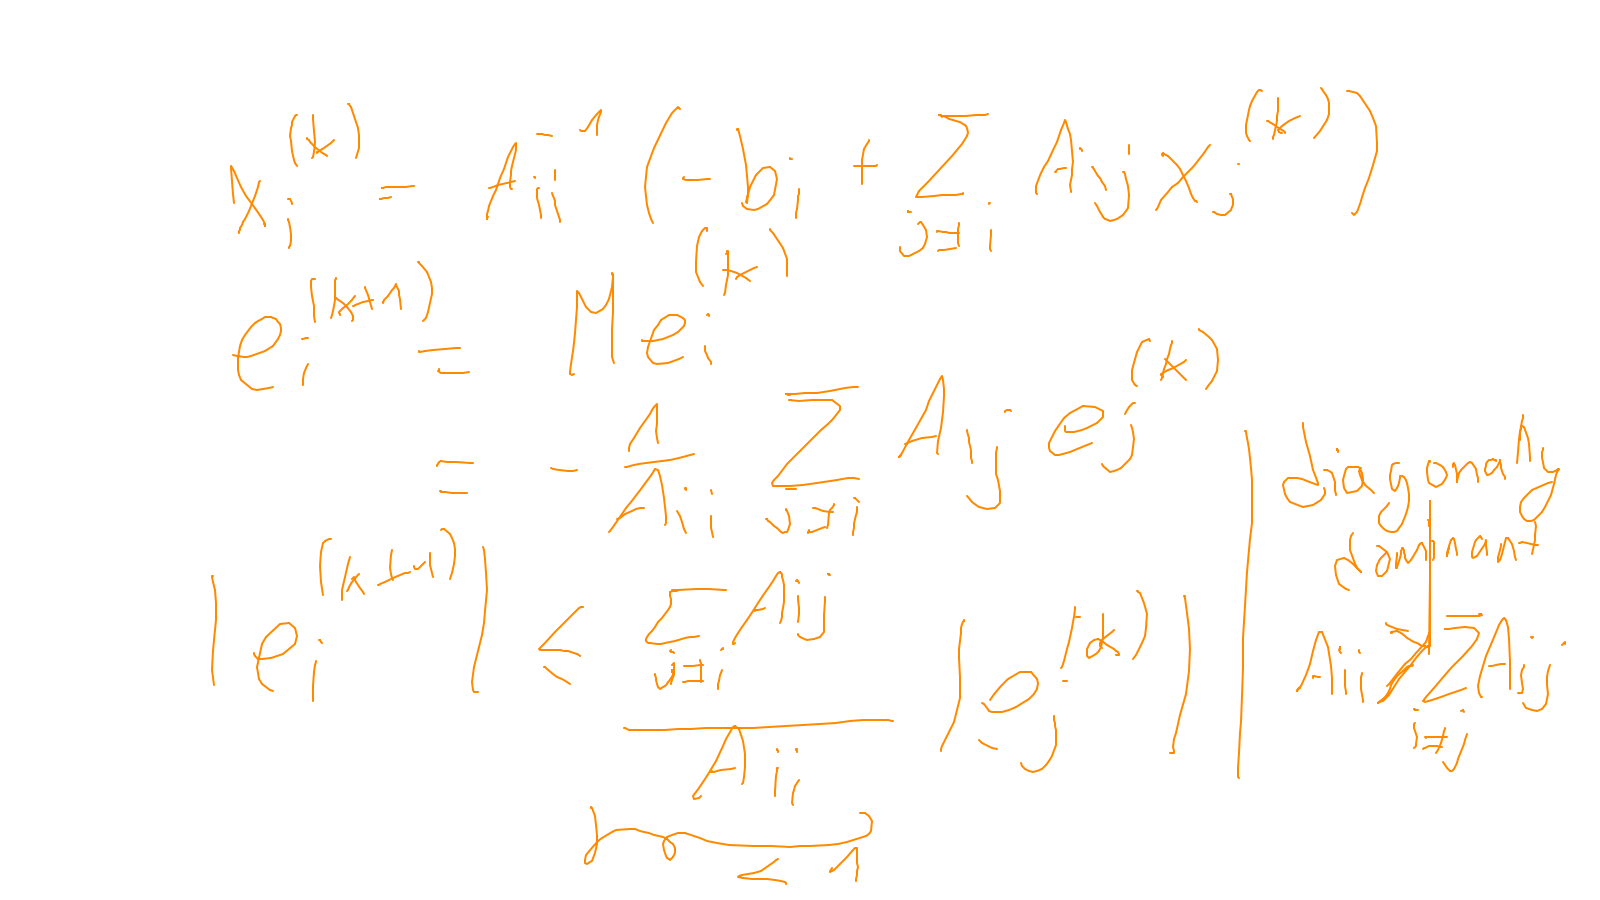 x_i^{(k)} = A_{ii}^{-1} ( - b_i + \sum_{j \neq i} A_{ij} x_j^{(k)} )
e_i^{(k+1)} = M e_i^{(k)}
= - \frac{1}{A_{ii}} \sum_{j \neq i} A_{ij} e_j^{(k)}
| e_i^{(k+1)} | \leq \frac{\sum_{j \neq i} A_{ij}}{A_{ii}} | e_j^{(k)} |
< 1
diagonally
dominant
A_{ii} > \sum_{i \neq j} A_{ij}